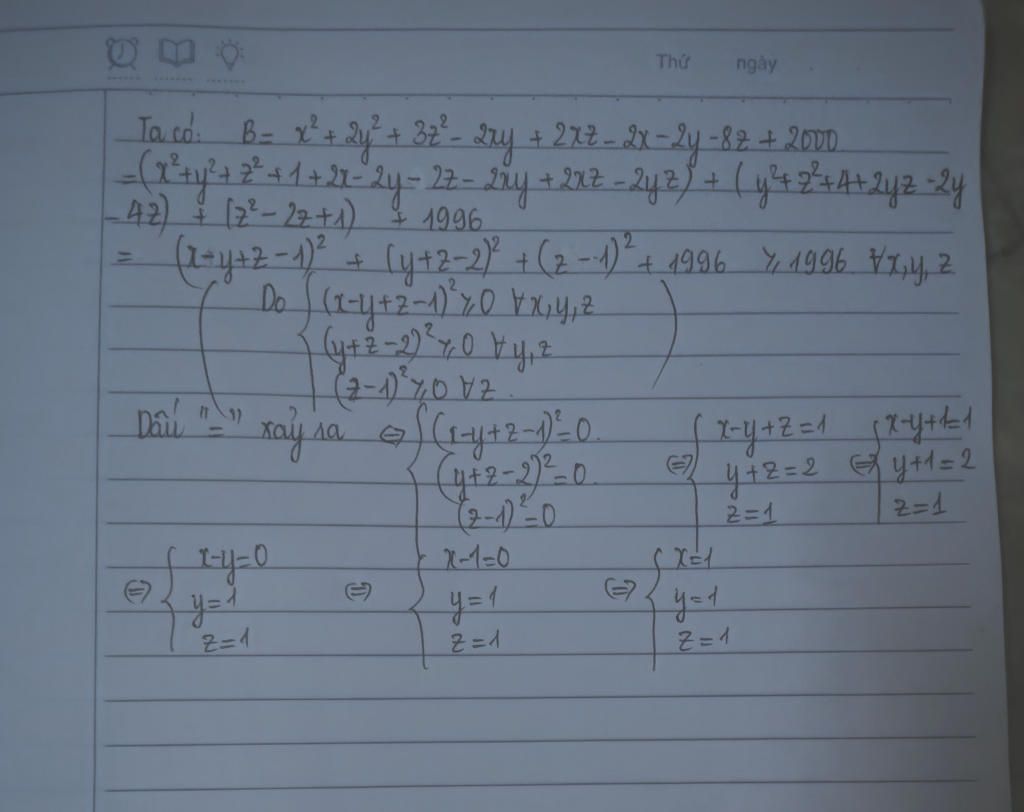 Thứ ngày
Ta có: B = x² + 2y² + 3z² - 2xy + 2xz - 2x - 2y - 8z + 2000
= (x² + y² + z² + 1 + 2x - 2y - 2z - 2xy + 2xz - 2yz) + (y² + z² + 4 + 2yz - 2y
- 4z) + (z² - 2z + 1) + 1996
= (x - y + z - 1)² + (y + z - 2)² + (z - 1)² + 1996 ⩾ 1996 ∀x, y, z
( Do { (x - y + z - 1)² ⩾ 0 ∀x, y, z )
(y + z - 2)² ⩾ 0 ∀y, z
(z - 1)² ⩾ 0 ∀z.
Dấu "=" xảy ra ⇔ { (x - y + z - 1)² = 0. ⇔ { x - y + z = 1 ⇔ { x - y + 1 = 1
(y + z - 2)² = 0. y + z = 2 y + 1 = 2
(z - 1)² = 0 z = 1 z = 1
⇔ { x - y = 0 ⇔ { x - 1 = 0 ⇔ { x = 1
y = 1 y = 1 y = 1
z = 1 z = 1 z = 1